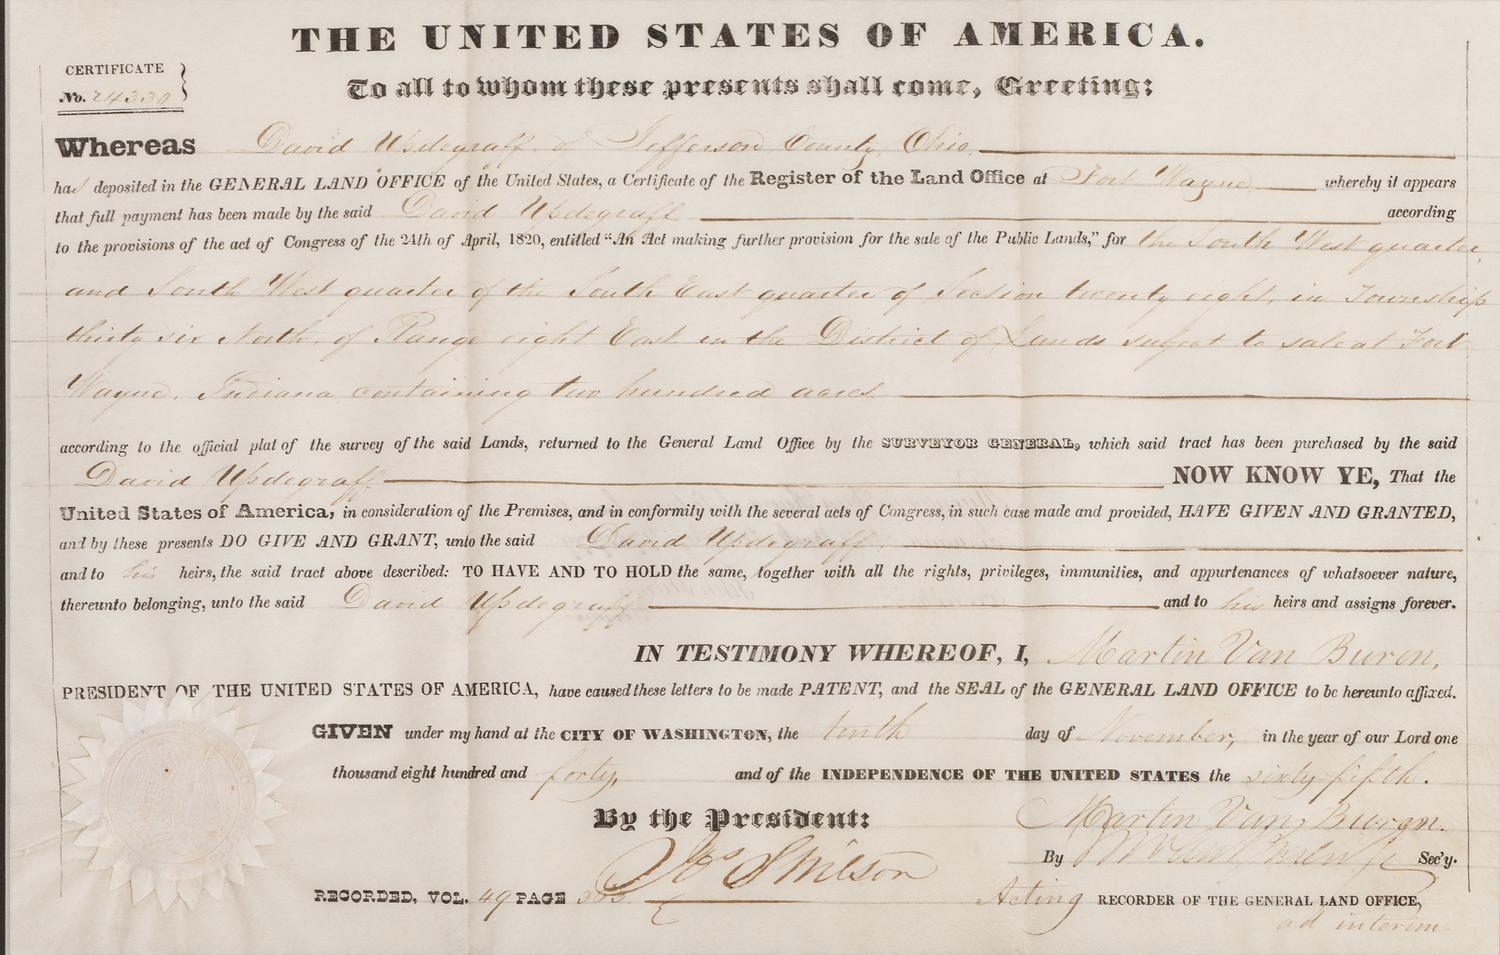 THE UNITED STATES OF AMERICA.
CERTIFICATE
No. 24330
To all to whom these presents shall come, Greeting:
Whereas David Updegraff, of Jefferson County, Ohio,
has deposited in the GENERAL LAND OFFICE of the United States, a Certificate of the Register of the Land Office at Fort Wayne whereby it appears
that full payment has been made by the said David Updegraff according
to the provisions of the act of Congress of the 24th of April, 1820, entitled "An Act making further provision for the sale of the Public Lands," for the South West quarter,
and South West quarter of the South East quarter of Section twenty eight, in Township
thirty six North, of Range eight East in the District of Lands subject to sale at Fort
Wayne, Indiana containing two hundred acres
according to the official plat of the survey of the said Lands, returned to the General Land Office by the SURVEYOR GENERAL, which said tract has been purchased by the said
David Updegraff NOW KNOW YE, That the
United States of America, in consideration of the Premises, and in conformity with the several acts of Congress, in such case made and provided, HAVE GIVEN AND GRANTED,
and by these presents DO GIVE AND GRANT, unto the said David Updegraff,
and to his heirs, the said tract above described: TO HAVE AND TO HOLD the same, together with all the rights, privileges, immunities, and appurtenances of whatsoever nature,
thereunto belonging, unto the said David Updegraff and to his heirs and assigns forever.
IN TESTIMONY WHEREOF, I, Martin Van Buren,
PRESIDENT OF THE UNITED STATES OF AMERICA, have caused these letters to be made PATENT, and the SEAL of the GENERAL LAND OFFICE to be hereunto affixed.
GIVEN under my hand at the CITY OF WASHINGTON, the tenth day of November, in the year of our Lord one
thousand eight hundred and forty, and of the INDEPENDENCE OF THE UNITED STATES the sixty fifth.
By the President: Martin Van Buren.
By Sec'y.
Jos S Wilson
RECORDED, VOL. 49 PAGE Acting RECORDER OF THE GENERAL LAND OFFICE,
ad interim